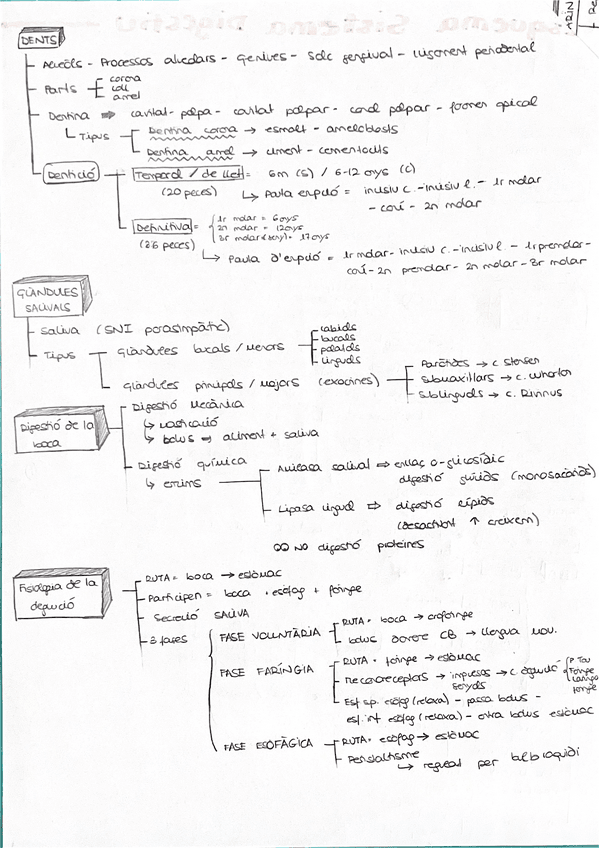 DENTS
Alvèols - Processos alveolars - Genives - Solc gengival - Lligament periodontal
Parts
corona
coll
arrel
Dentina ⇒ cavitat - polpa - cavitat polpar - canal polpar - foramen apical
Tipus
Dentina corona → esmalt - ameloblasts
Dentina arrel → ciment - cementocits
Dentició
Temporal / de llet = 6m (s) / 6-12 anys (c)
(20 peces)
↳ Pauta erupció = incisiu c. - incisiu l. - 1r molar
- caní - 2n molar
Definitiva =
1r molar = 6 anys
2n molar = 12 anys
3r molar (seny) = 17 anys
(28 peces)
↳ Pauta d'erupció = 1r molar - incisiu c. - incisiu l. - 1r premolar -
caní - 2n premolar - 2n molar - 3r molar
GLÀNDULES
SALIVALS
Saliva (SNI parasimpàtic)
Tipus
Glàndules bucals / Menors
labials
bucals
palatals
linguals
Glàndules principals / Majors (exocrines)
Paròtides → c. Stensen
Submaxil·lars → c. Wharton
Sublinguals → c. Rivinus
Digestió de la
boca
Digestió Mecànica
↳ masticació
↳ bolus ⇒ aliment + saliva
Digestió química
↳ enzims
Amilasa salival ⇒ enllaç o-glicosídic
digestió glúcids (monosacàrids)
Lipasa lingual ⇒ digestió lípids
(desactivant ↑ creixem)
NO digestió proteïnes
Fisiologia de la
deglució
RUTA = boca → estómac
Participen = boca · esòfag + faringe
Secreció SALIVA
3 fases
FASE VOLUNTÀRIA
RUTA = boca → orofaringe
bolus darrere CB → llengua mov.
FASE FARÍNGIA
RUTA = faringe → estómac
Mecanoreceptors → impulsos → c. deglució
senyals
P. Tou
Faringe
Laringe
Esf. sp. esòfag (relaxa) - passa bolus -
esf. inf. esòfag (relaxa) - entra bolus estómac
FASE ESOFÀGICA
RUTA = esòfag → estómac
Peristaltisme
↳ regulat per bulb raquidi